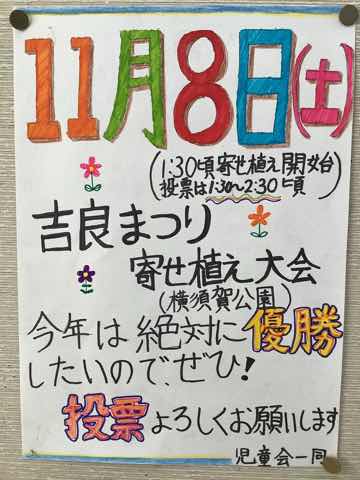 11月8日(土)
(1:30頃寄せ植え開始
投票は1:30〜2:30頃)
吉良まつり
寄せ植え大会
(横須賀公園)
今年は絶対に優勝
したいので、ぜひ!
投票よろしくお願いします
児童会一同